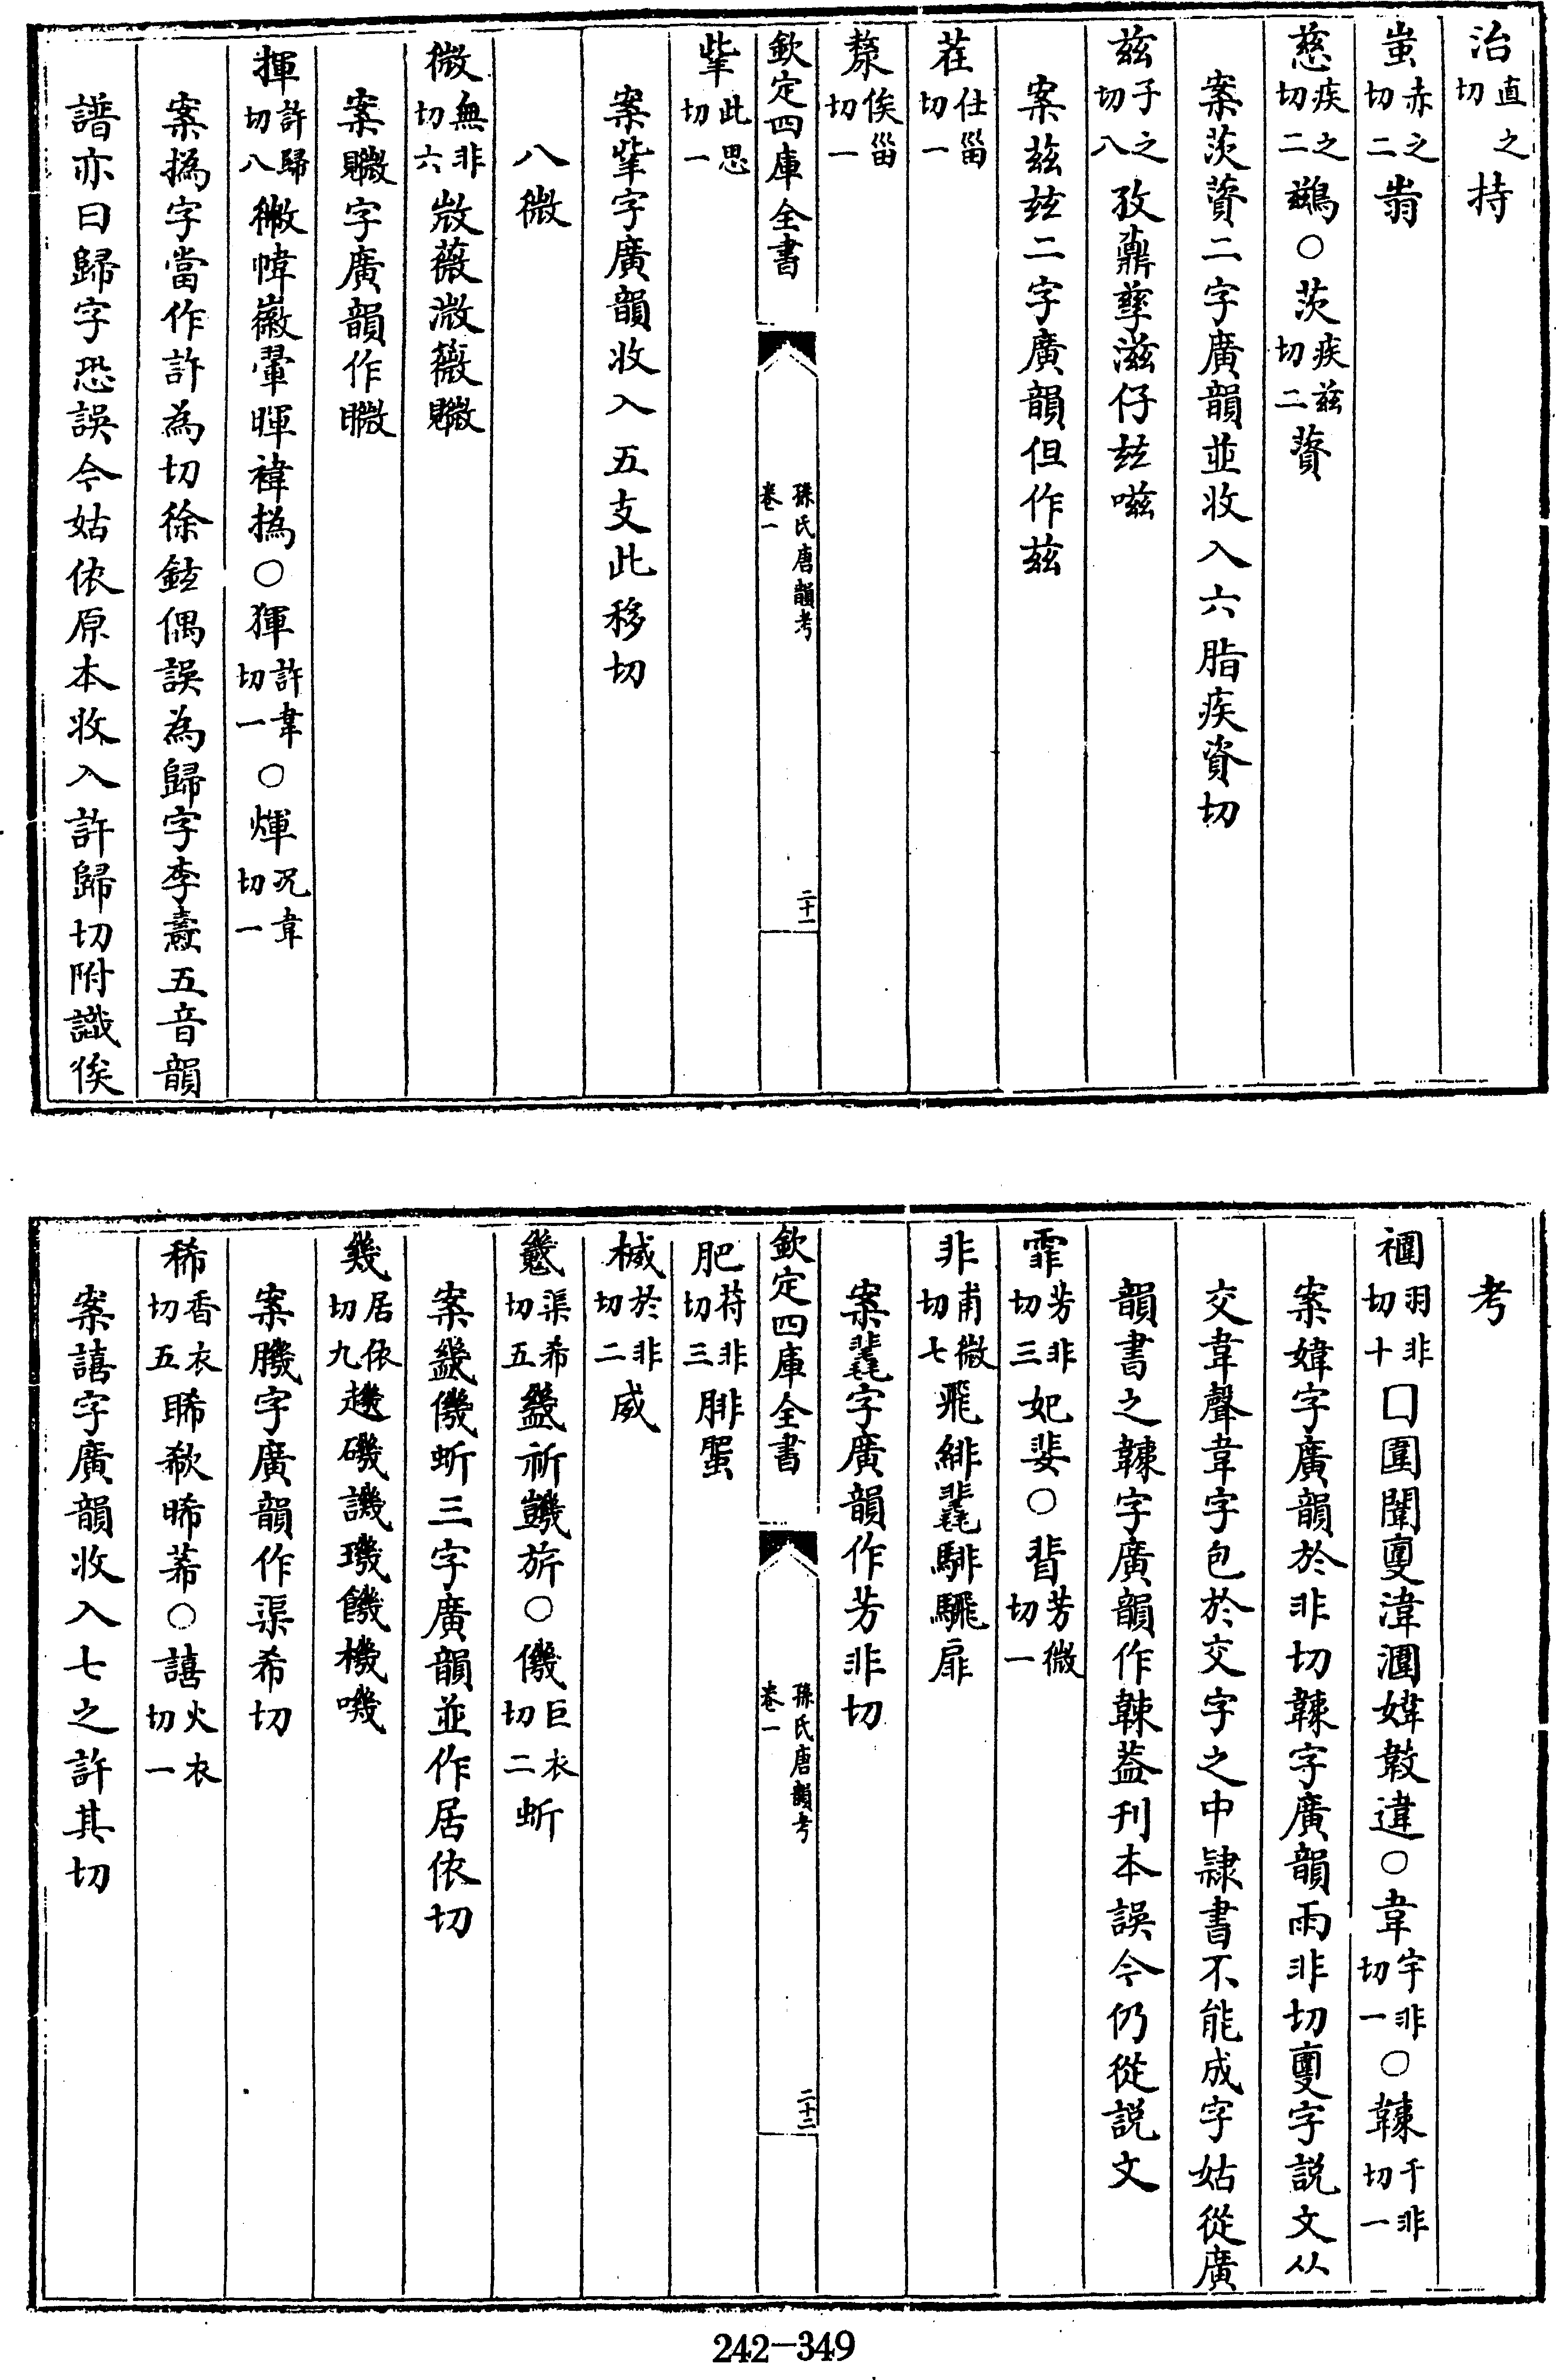 治直之切持
蚩赤之切二㞴
慈疾之切二鷀○茨疾兹切二薋
案茨薋二字廣韻並收入六脂疾資切
兹子之切八孜鼒孳滋仔玆嗞
案兹玆二字廣韻但作兹
茬仕甾切一
漦俟甾切一
欽定四庫全書 孫氏唐韻考 卷一 二十一
㧘此思切一
案㧘字廣韻收入五支此移切
八微
微無非切六㪫薇溦薇矀
案矀字廣韻作矀
揮許歸切八徽幃徽翬暉褘撝○㹆許韋切一○煇况韋切一
案撝字當作許為切徐鉉偶誤為歸字李燾五音韻
譜亦曰歸字恐誤今姑依原本收入許歸切附識俟
考
褔羽非切十囗圍闈𡕾湋潿媁敤違○韋宇非切一○𩏑于非切一
案媁字廣韻於非切𩏑字廣韻雨非切𡕾字說文从
交韋聲韋字包於交字之中隸書不能成字姑從廣
韻書之𩏑字廣韻作𩏑葢刊本誤今仍從説文
霏芳非切三妃婓○㫵芳微切一
非甫微切七飛緋𣰆騑騛扉
案𣰆字廣韻作芳非切
欽定四庫全書 孫氏唐韻考 卷一 二十二
肥符非切三腓蜰
楲於非切二威
㡬渠希切五㡮祈𧯸旂○僟巨衣切二蚚
案㡮僟蚚三字廣韻並作居依切
幾居依切九趬磯譏璣饑機嘰
案䤒字廣韻作渠希切
稀香衣切五睎欷晞莃○譆火衣切一
案譆字廣韻收入七之許其切
242-349